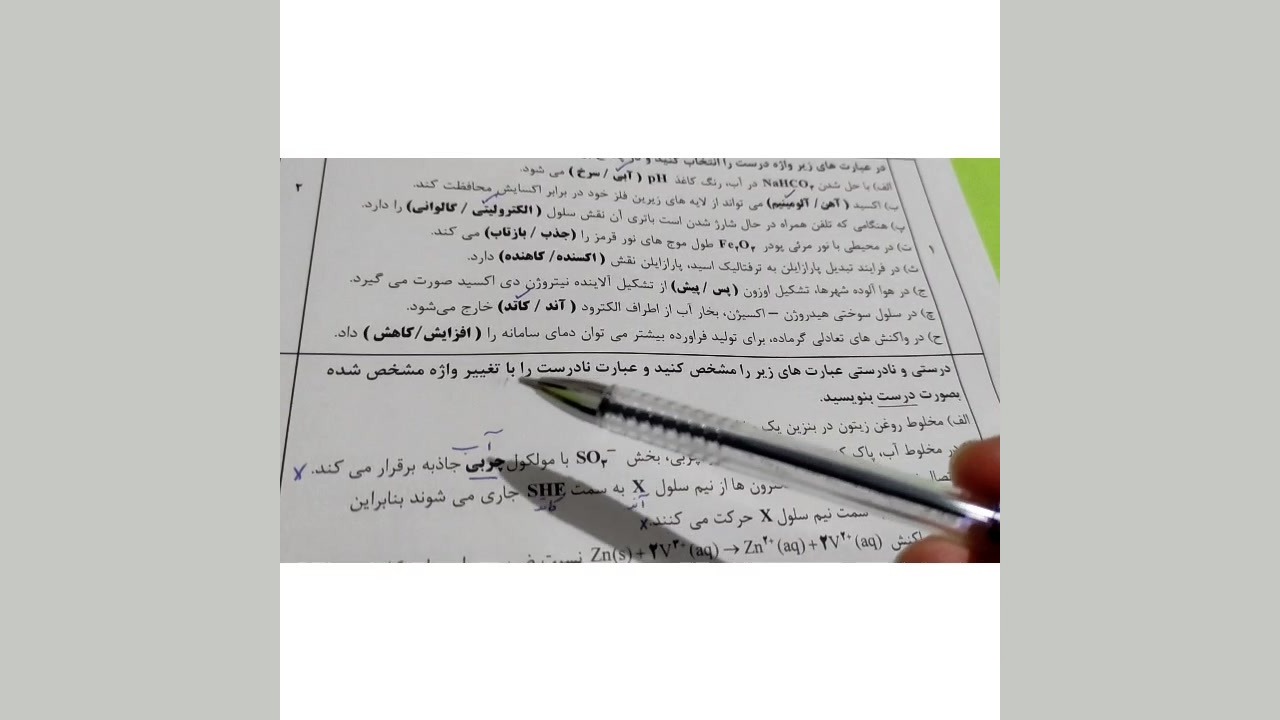 در عبارت های زیر واژه درست را انتخاب کنید و
الف) با حل شدن NaHCO₃ در آب، رنگ کاغذ pH ( آبی / سرخ ) می شود.
۲
ب) اکسید (آهن / آلومینیم) می تواند از لایه های زیرین فلز خود در برابر اکسایش محافظت کند.
پ) هنگامی که تلفن همراه در حال شارژ شدن است باتری آن نقش سلول ( الکترولیتی / گالوانی) را دارد.
۱
ت) در محیطی با نور مرئی پودر Fe₂O₃ طول موج های نور قرمز را (جذب / بازتاب) می کند.
ث) در فرایند تبدیل پارازایلن به ترفتالیک اسید، پارازایلن نقش ( اکسنده/ کاهنده) دارد.
ج) در هوا آلوده شهرها، تشکیل اوزون ( پس / پیش) از تشکیل آلاینده نیتروژن دی اکسید صورت می گیرد.
چ) در سلول سوختی هیدروژن – اکسیژن، بخار آب از اطراف الکترود ( آند / کاتد) خارج می‌شود.
ح) در واکنش های تعادلی گرماده، برای تولید فراورده بیشتر می توان دمای سامانه را ( افزایش/کاهش ) داد.
درستی و نادرستی عبارت های زیر را مشخص کنید و عبارت نادرست را با تغییر واژه مشخص شده
بصورت درست بنویسید.
الف) مخلوط روغن زیتون در بنزین یک
در مخلوط آب، پاک چربی، بخش SO₃⁻ با مولکول چربی جاذبه برقرار می کند. x
آب
از نیم سلول X به سمت SHE جاری می شوند بنابراین
آند کاتد
سمت نیم سلول X حرکت می کنند. x
واکنش Zn(s) + ۲V³⁺(aq) → Zn²⁺(aq) + ۲V²⁺(aq) نسبت